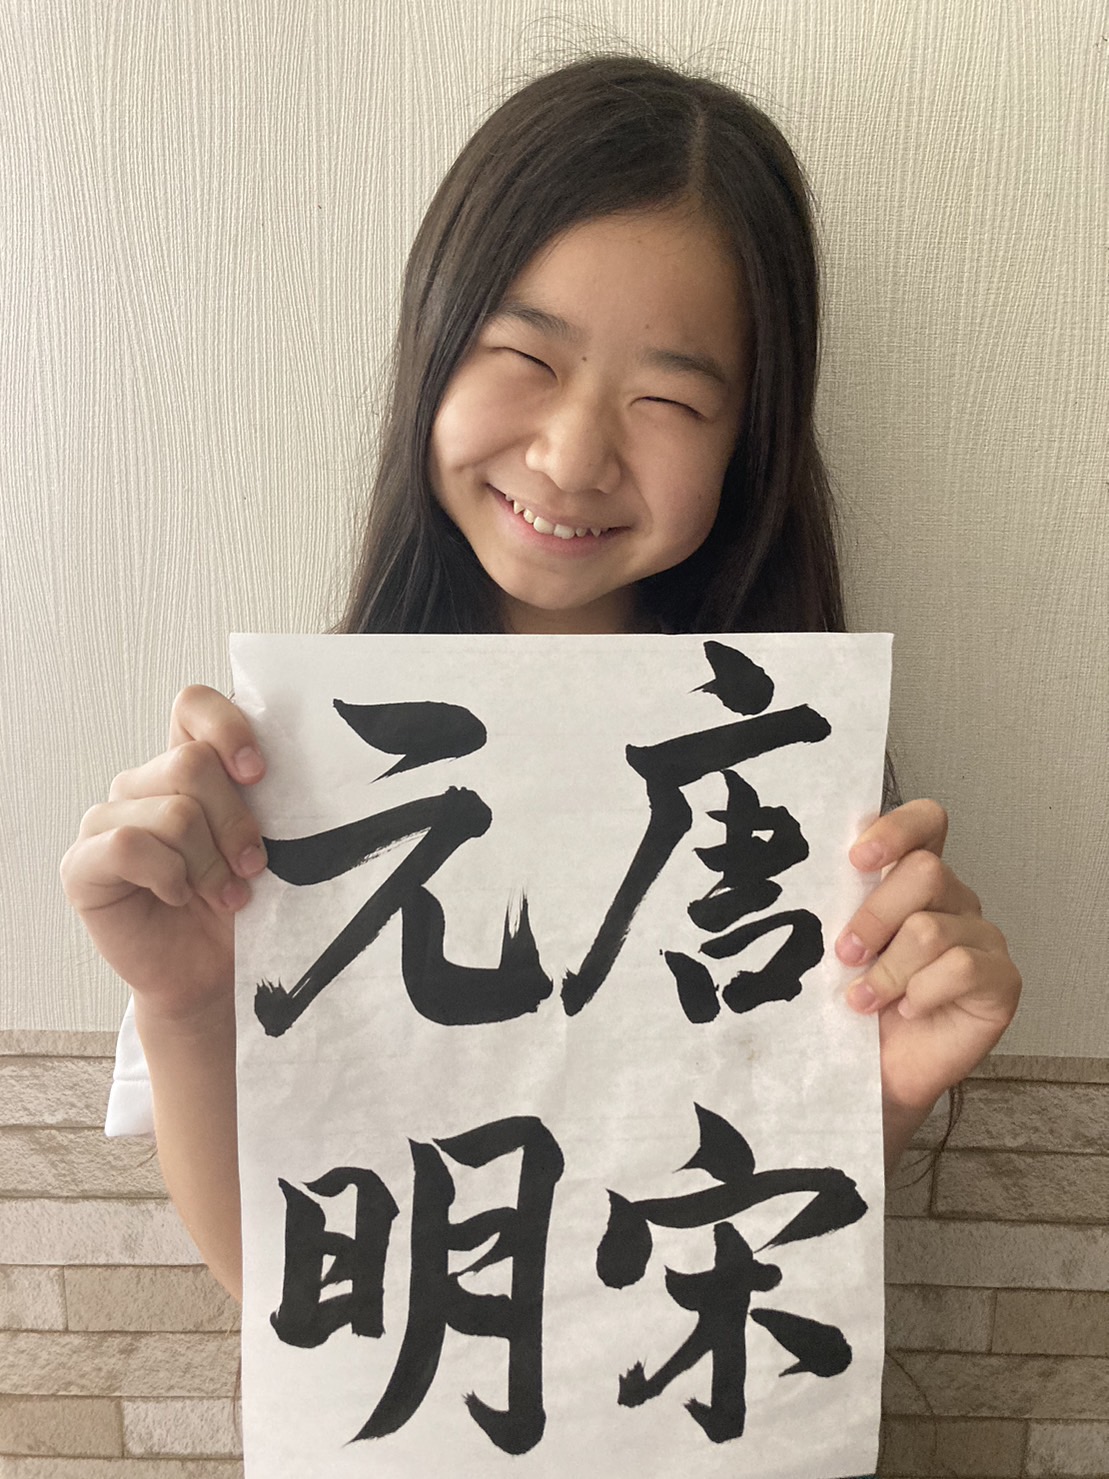 唐宋
元明